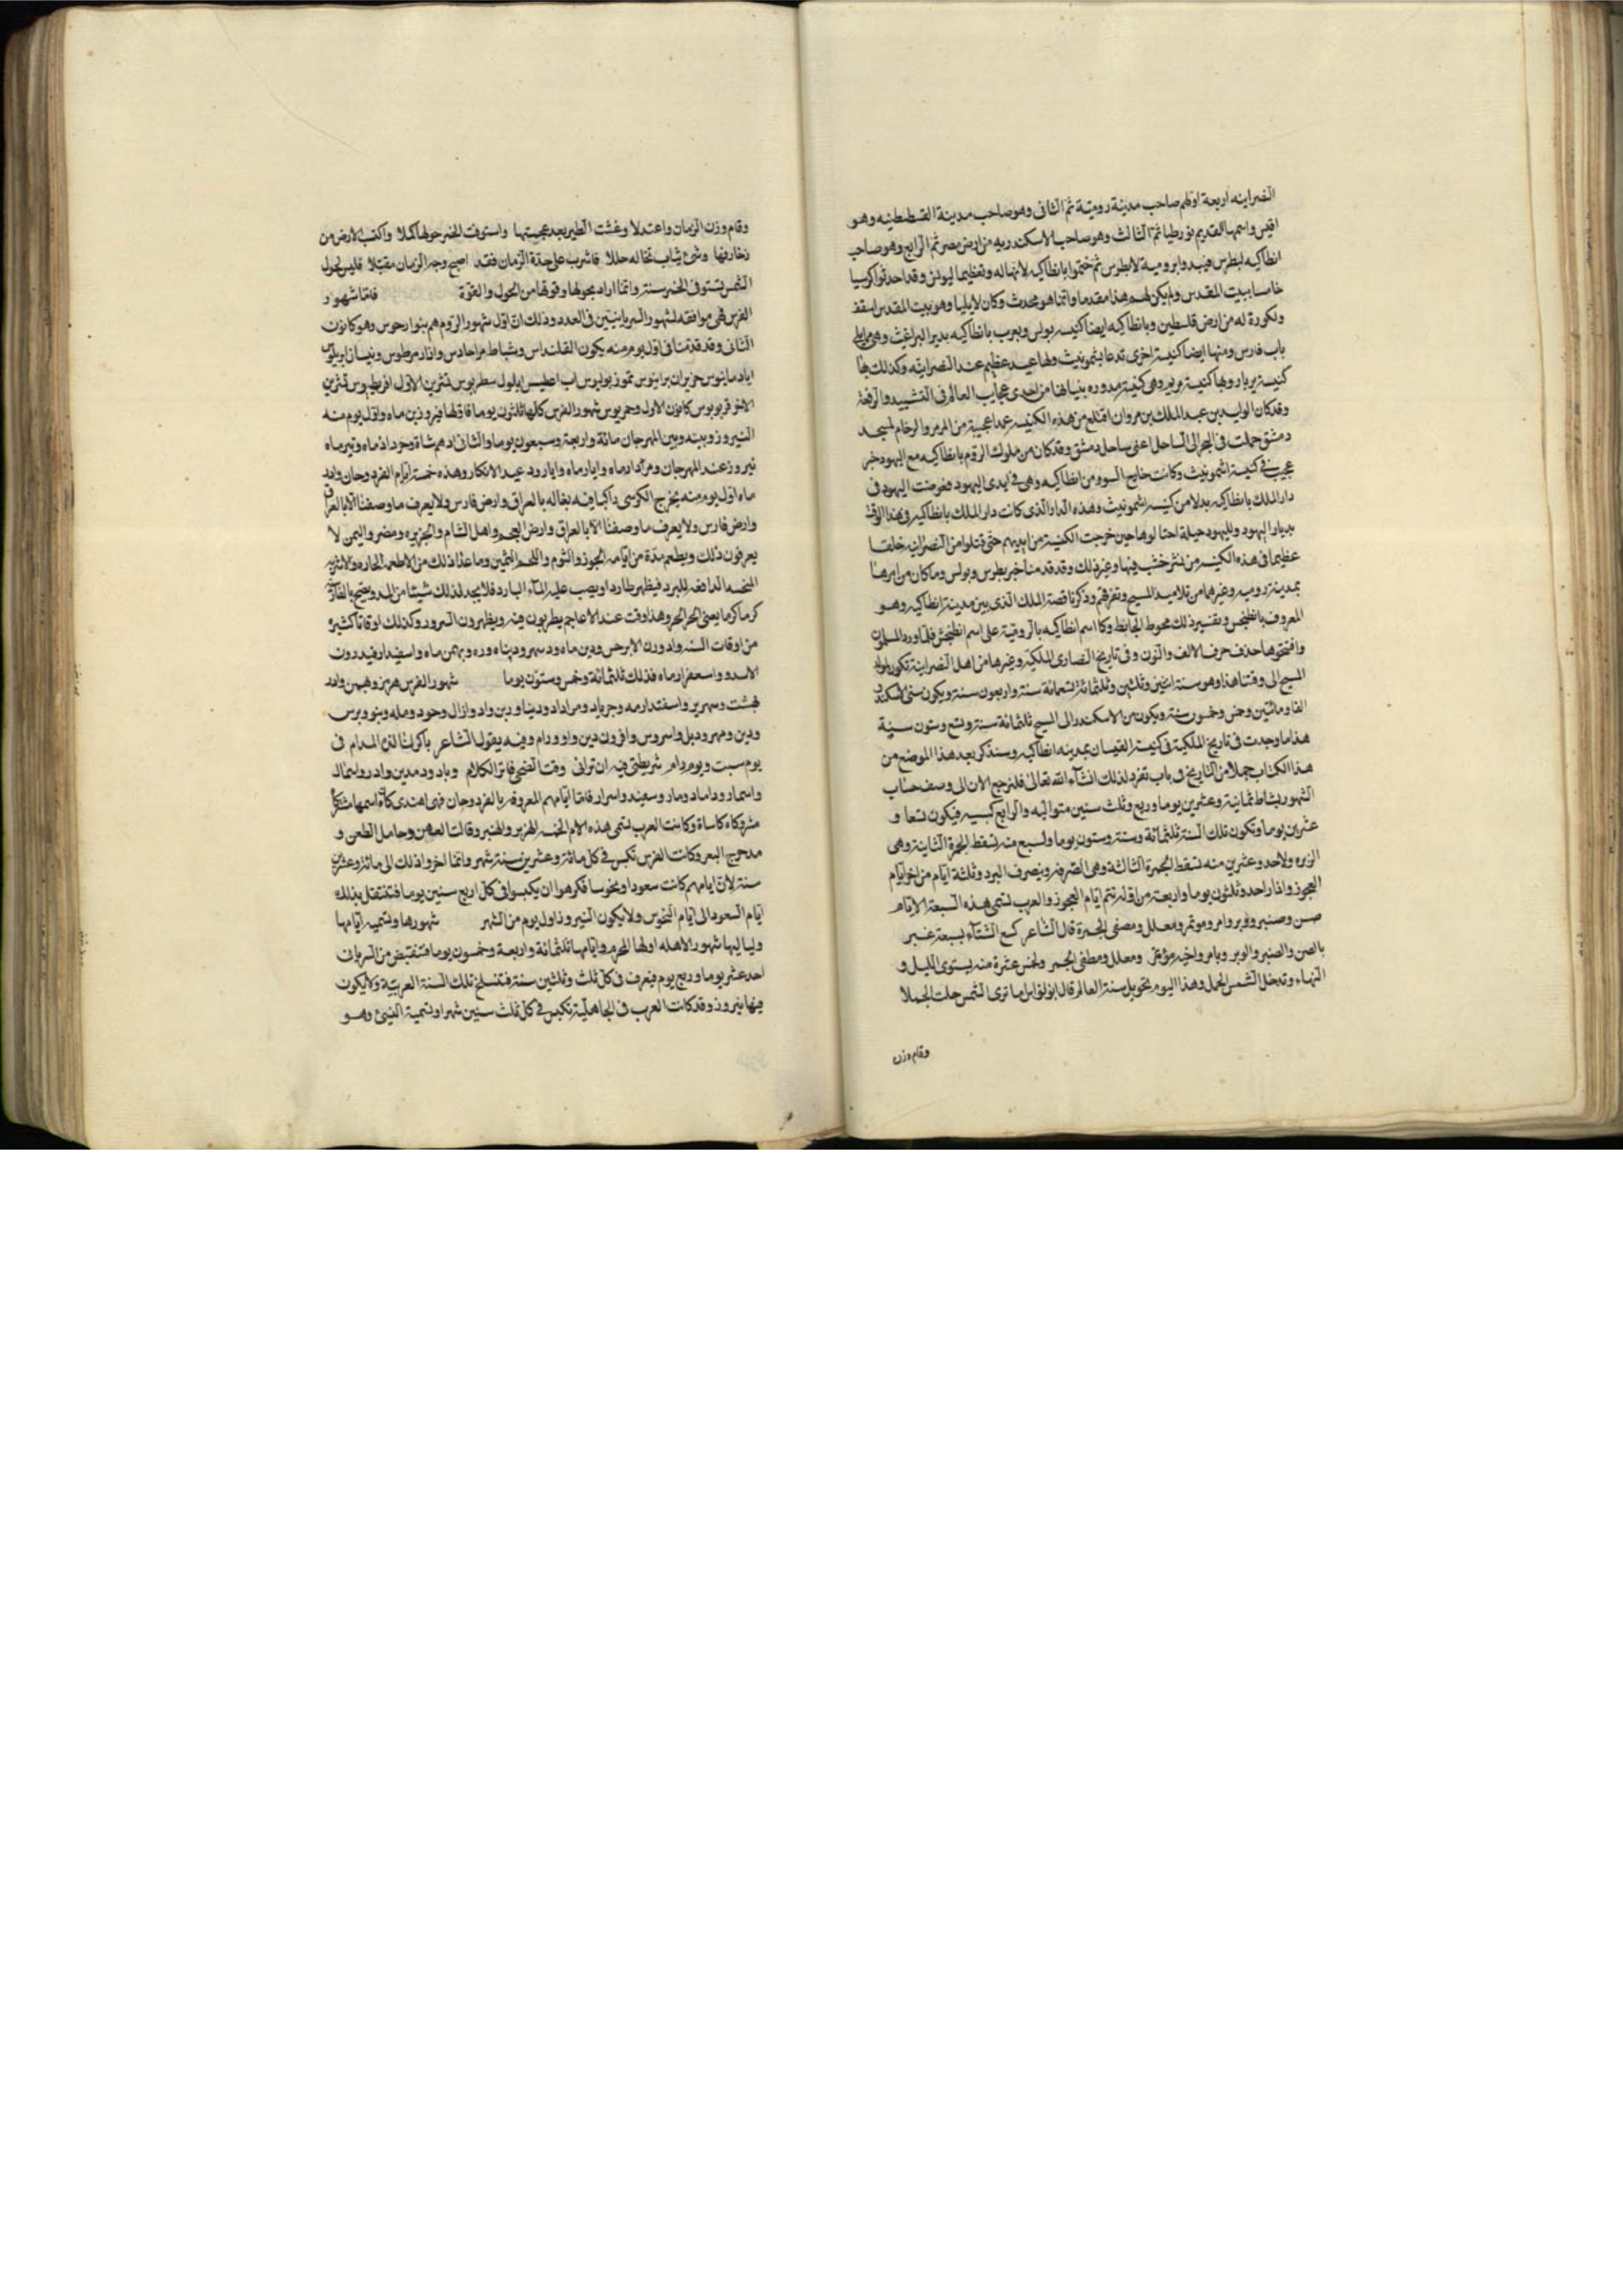 النصرانيه اربعة اولهم صاحب مدينة رومية ثم الثانى وهو صاحب مدينة القسطنطنيه وهو
واسمها القديم بورطيا ثم الثالث وهو صاحب الاسكندريه من ارض مصر ثم الرابع وهو صاحب
انطاكيه لبطرس فبدوا برومية لابطرس ثم ختموا بانطاكيه لانها له وتعظيما لبولس وقد احدثوا كرسيا
خامسا ببيت المقدس ولم يكن لهم هذا مقدما وانما هو محدث وكان لايليا وهو بيت المقدس اسقف
ولكورة له من ارض فلسطين وبانطاكيه ايضا كنيسه بولس ويعرف بانطاكيه بدير البراغيث وهى مما يلى
باب فارس ومنها ايضا كنيسة اخرى تدعا بشمونيث ولها عيد عظيم عند النصرانيه وكذلك بها
كنيسة بربار وبها كنيسة مريم وهى كنيسة مدوره بنيانها من احدى عجايب العالم فى التشييد والرفعة
وقد كان الوليد بن عبد الملك بن مروان اقتلع من هذه الكنيسه عمدا عجيبة من المرمر والرخام لمسجد
دمشق حملت فى البحر الى الساحل اعنى ساحل دمشق وقد كان من ملوك الروم بانطاكيه مع اليهود خبر
عجيب فى كنيسة اشمونيث وكانت خارج السور من انطاكيه وهى فى ايدى اليهود فعوضت اليهود فى
دار الملك بانطاكيه بدلا من كنيسه اشمونيث وهذه الدار الذى كانت دار الملك بانطاكيه فى هذا الوقت
بديار اليهود ولليهود حيلة احتالوها حين خرجت الكنيسة من ايديهم حتى قتلوا من النصرانيه خلقا
عظيما فى هذه الكنيسه من نشر خشب فيها وغير ذلك وقد قدمنا خبر بطرس وبولس وما كان من امرهما
بمدينة روميه وغيرهما من تلاميذ المسيح وتفرقهم وذكرنا قصة الملك الذى بين مدينة انطاكيه وهو
المعروف بانطيخس وتفسير ذلك محوط الحايط وكا اسم انطاكيه بالرومية على اسم انطيخش فلما ورد المسلمون
وافتتحوها حذف حرف الالف والنون وفى تاريخ النصارى الملكية وغيرها من اهل النصرانية تكون مولد
المسيح الى وقتنا هذا وهو سنة اثنين وثلثين وثلثمائة تسعمائة سنة واربعون سنة ويكون سنى الاسكندر
الفا ومائتين وخمس وخمسون سنة ويكون من الاسكندر الى المسيح ثلثمائة سنة وتسع وستون سنة
هذا ما وجدت فى تاريخ الملكية فى كنيسة القيسان بمدينه انطاكيه وسنذكر بعد هذا الموضع من
هذا الكتاب جملا من التاريخ فى باب تفرد لذلك انشآء الله تعالى فلنرجع الان الى وصف حساب
الشهور بشاط ثمانية وعشرين يوما وربع وثلث سنين متواليه والرابع كبسيه فيكون تسعا و
عشرين يوما وتكون تلك السنة ثلثمائة وستة وستون يوما ولسبع منه تسقط الجمرة الثانية وهى
الزبره ولاحد وعشرين منه تسقط الجمرة الثالثة وهى الصرفة وينصرف البرد وثلثة ايام من اخر ايام
العجوز واذار احد وثلثون يوما واربعة من اوله تتم ايام العجوز والعرب تسمى هذه السبعة الايام
صن وصنبر ووبر وامر وموتمر ومعلل ومصفى الجمرة قال الشاعر كسع الشتآء بسبعة غبر
بالصن والصنبر والوبر وبامر واخيه مؤتمر ومعلل ومطفى الجمر ولخمس عشرة منه يستوى الليل و
النهاء وتدخل الشمس الحمل وهذا اليوم تحويل سنة العالم قال ابو نواس اما ترى الشمس حلت الحملا
وقام وزن
وقام وزن الزمان واعتدلا وغنت الطير بعد عجمتها واستوفت الخمر حولها كملا واكتست الارض من
زخارفها وشى ثياب تخاله حللا فاشرب على جدة الزمان فقد اصبح وجه الزمان مقتبلا فليس لحول
الشمس تستوفى الخمر سنة وانما اراد بحولها وقوتها من الحول والقوة فاما شهور
الفرس فهى موافقه لشهور السريانيين فى العدد وذلك ان اول شهور الروم هم ينوارحوس وهو كانون
الثانى وقد قدمنا فى اول يوم منه يكون القلنداس وشباط واذار مرطوس ونيسان ابريلوس
اياد مايوس حزيران يرانيوس تموز يوليوس اب ايلول سطربوس تشرين الاول تشرين
الاخر كانون الاول وحمريوس شهور الفرس كلها ثلثون يوما فاولها فيروزين ماه واول يوم منه
النيروز وبينه وبين المهرجان مائة واربعة وسبعون يوما والثانى اردبهشاة وخرداذ ماه وتيرماه
نيروز عند المهرجان ومرداد ماه وابارماه وابار رود عيد الانكار وهذه خمسة ايام الفردوجان وادر
ماه اول يوم منه يخرج الكوسى راكبا فيه بغاله بالعراق وارض فارس ولا يعرف ما وصفنا الا بالعراق
وارض فارس ولا يعرف ما وصفنا الا بالعراق وارض العجم واهل الشام والجزيره ومضر واليمن لا
يعرفون ذلك ويطعم مدة من ايامه الجوز والثوم واللحم السمين وما عدا ذلك من الاطعمه الحاره والاشربه
المسخنه الدافعه للبرد فيظهر طاردا ويصب عليه المآء البارد فلا يجد لذلك شيئا من البرد ويصيح بالفارسيه
كرما كرما يعنى الحر الحر وهذا وقت عند الاعاجم يطربون فيه ويظهرون السرور وكذلك اوقاتا كثيرة
من اوقات السنه وبهمن ماه واسفندارفيدرون
الاسدو واسفندارماه فذلك ثلثمائة وخمس وستون يوما شهور الفرس هرمز وبهمن وادر
بهشت وسهرير واسفندارمه وجرياد ومراداد وديناوربن واد وازال وحود وماه وبنوويرس
ودبن ومهر ودبل واسروس وافرون دين واوورام وفيه يقول الشاعر باكرنا لذى المدام فى
يوم سبت ويوم رام شريطتى فيه ان ترانى وقت الضحى فاتر الكلام وباد ودمدين وادر واسمال
واسمار وداماد ومار وسعيند واسرار فاما ايامهم المعروفه بالفردوجان فهى اهندى كاه اسمها مشكاه
مشروكاه كاساة وكانت العرب تسمى هذه الايام الخمسه الهزبر والهنبر وقالت العاهن وحامل الطعن و
مدحرج البعر وكانت الفرس تكبس فى كل مائة وعشرين سنة شهر وانما اخروا ذلك الى مائة وعشرين
سنة لان ايامهم كانت سعودا ونحوسا فكرهوا ان يكبسوا فى كل اربع سنين يوما فتنتقل بذلك
ايام السعود الى ايام النحوس ولا يكون النيروز اول يوم من الشهر شهورها وتسميه ايامها
ولياليها شهور الاهله اولها المحرم وايامها ثلثمائة واربعة وخمسون يوما فتنقص من السريان
احد عشر يوما وربع يوم فيعرف فى كل ثلث وثلثين سنة فتنسلخ تلك السنة العربية ولا يكون
فيها نيروز وقد كانت العرب فى الجاهلية تكبس فى كل ثلث سنين شهرا وتسمية النسئ وهو